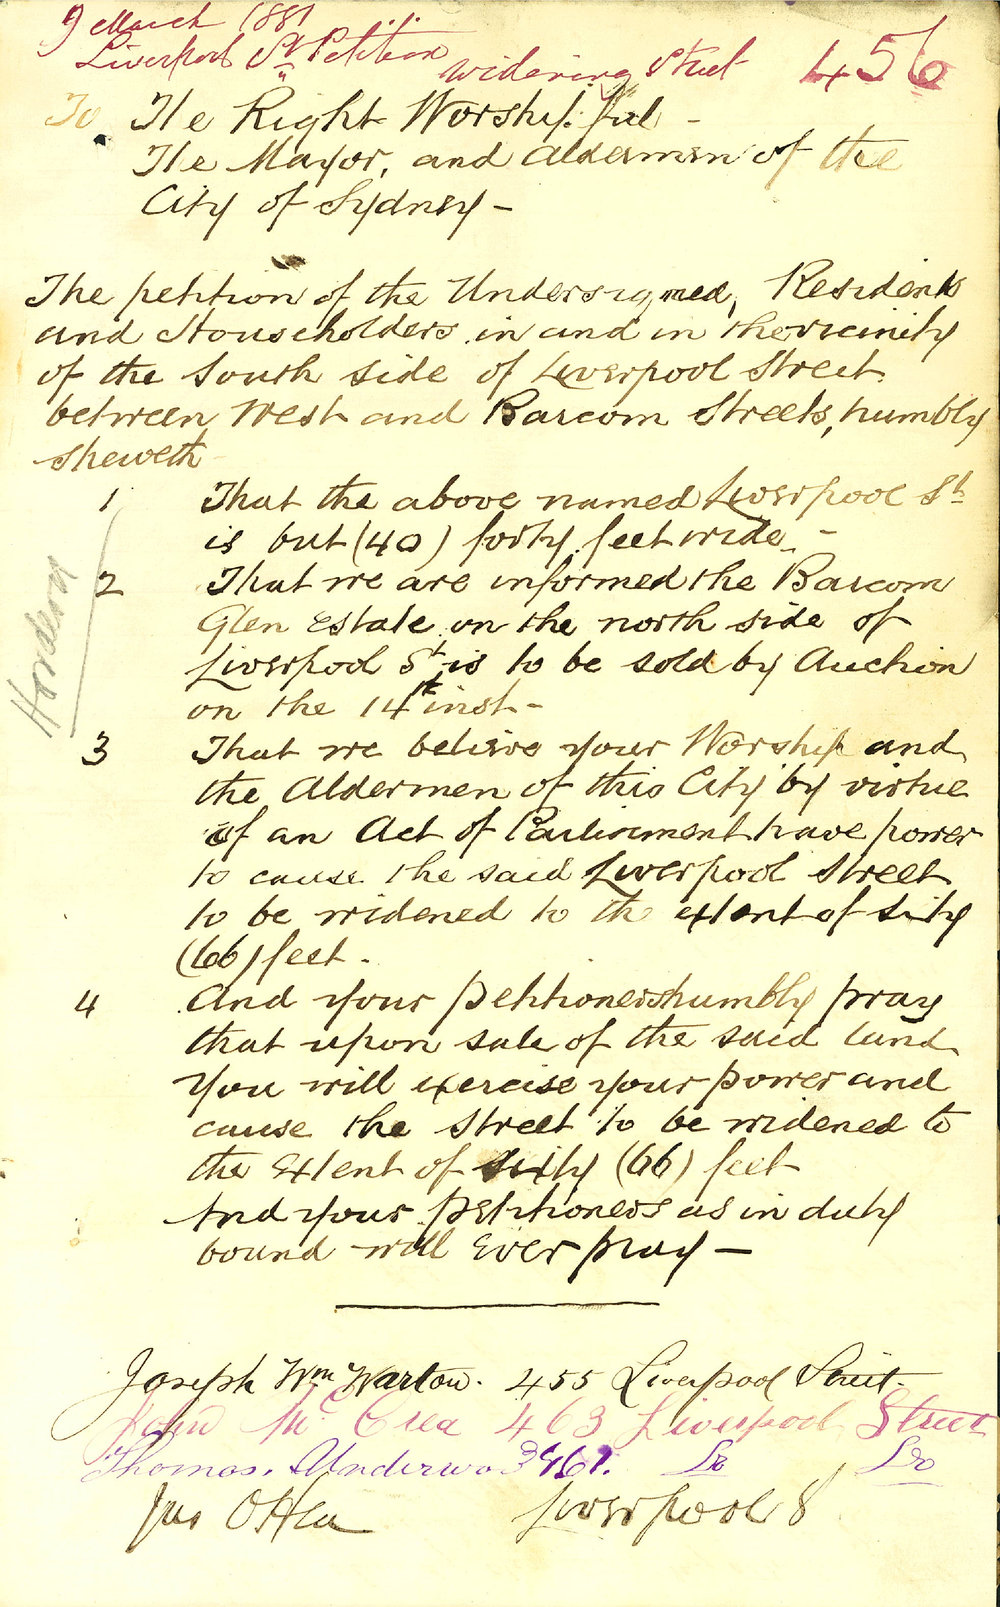 9 March 1881
Liverpool St Petition
widening Street 456
To The Right Worshipful -
The Mayor, and Aldermen of the
City of Sydney -
The petition of the Undersigned, Residents
and Householders in and in the vicinity
of the South side of Liverpool Street
between West and Barcom Streets, humbly
sheweth
1 That the above named Liverpool St
is but (40) forty feet wide -
2 That we are informed the Barcom
Glen Estate on the north side of
Liverpool St is to be sold by Auction
on the 14th inst -
Hordern
3 That we believe your Worship and
the Aldermen of this City by virtue
of an Act of Parliament have power
to cause the said Liverpool Street
to be widened to the extent of sixty
(66) feet.
4 And your petitioners humbly pray
that upon sale of the said land
you will exercise your power and
cause the Street to be widened to
the Extent of sixty (66) feet
And your petitioners as in duty
bound will Ever pray -
Joseph Wm Warton. 455 Liverpool Street.
John McCrea 463 Liverpool Street
Thomas. Underwo 461. Do Do
Jas O'Hea Liverpool S